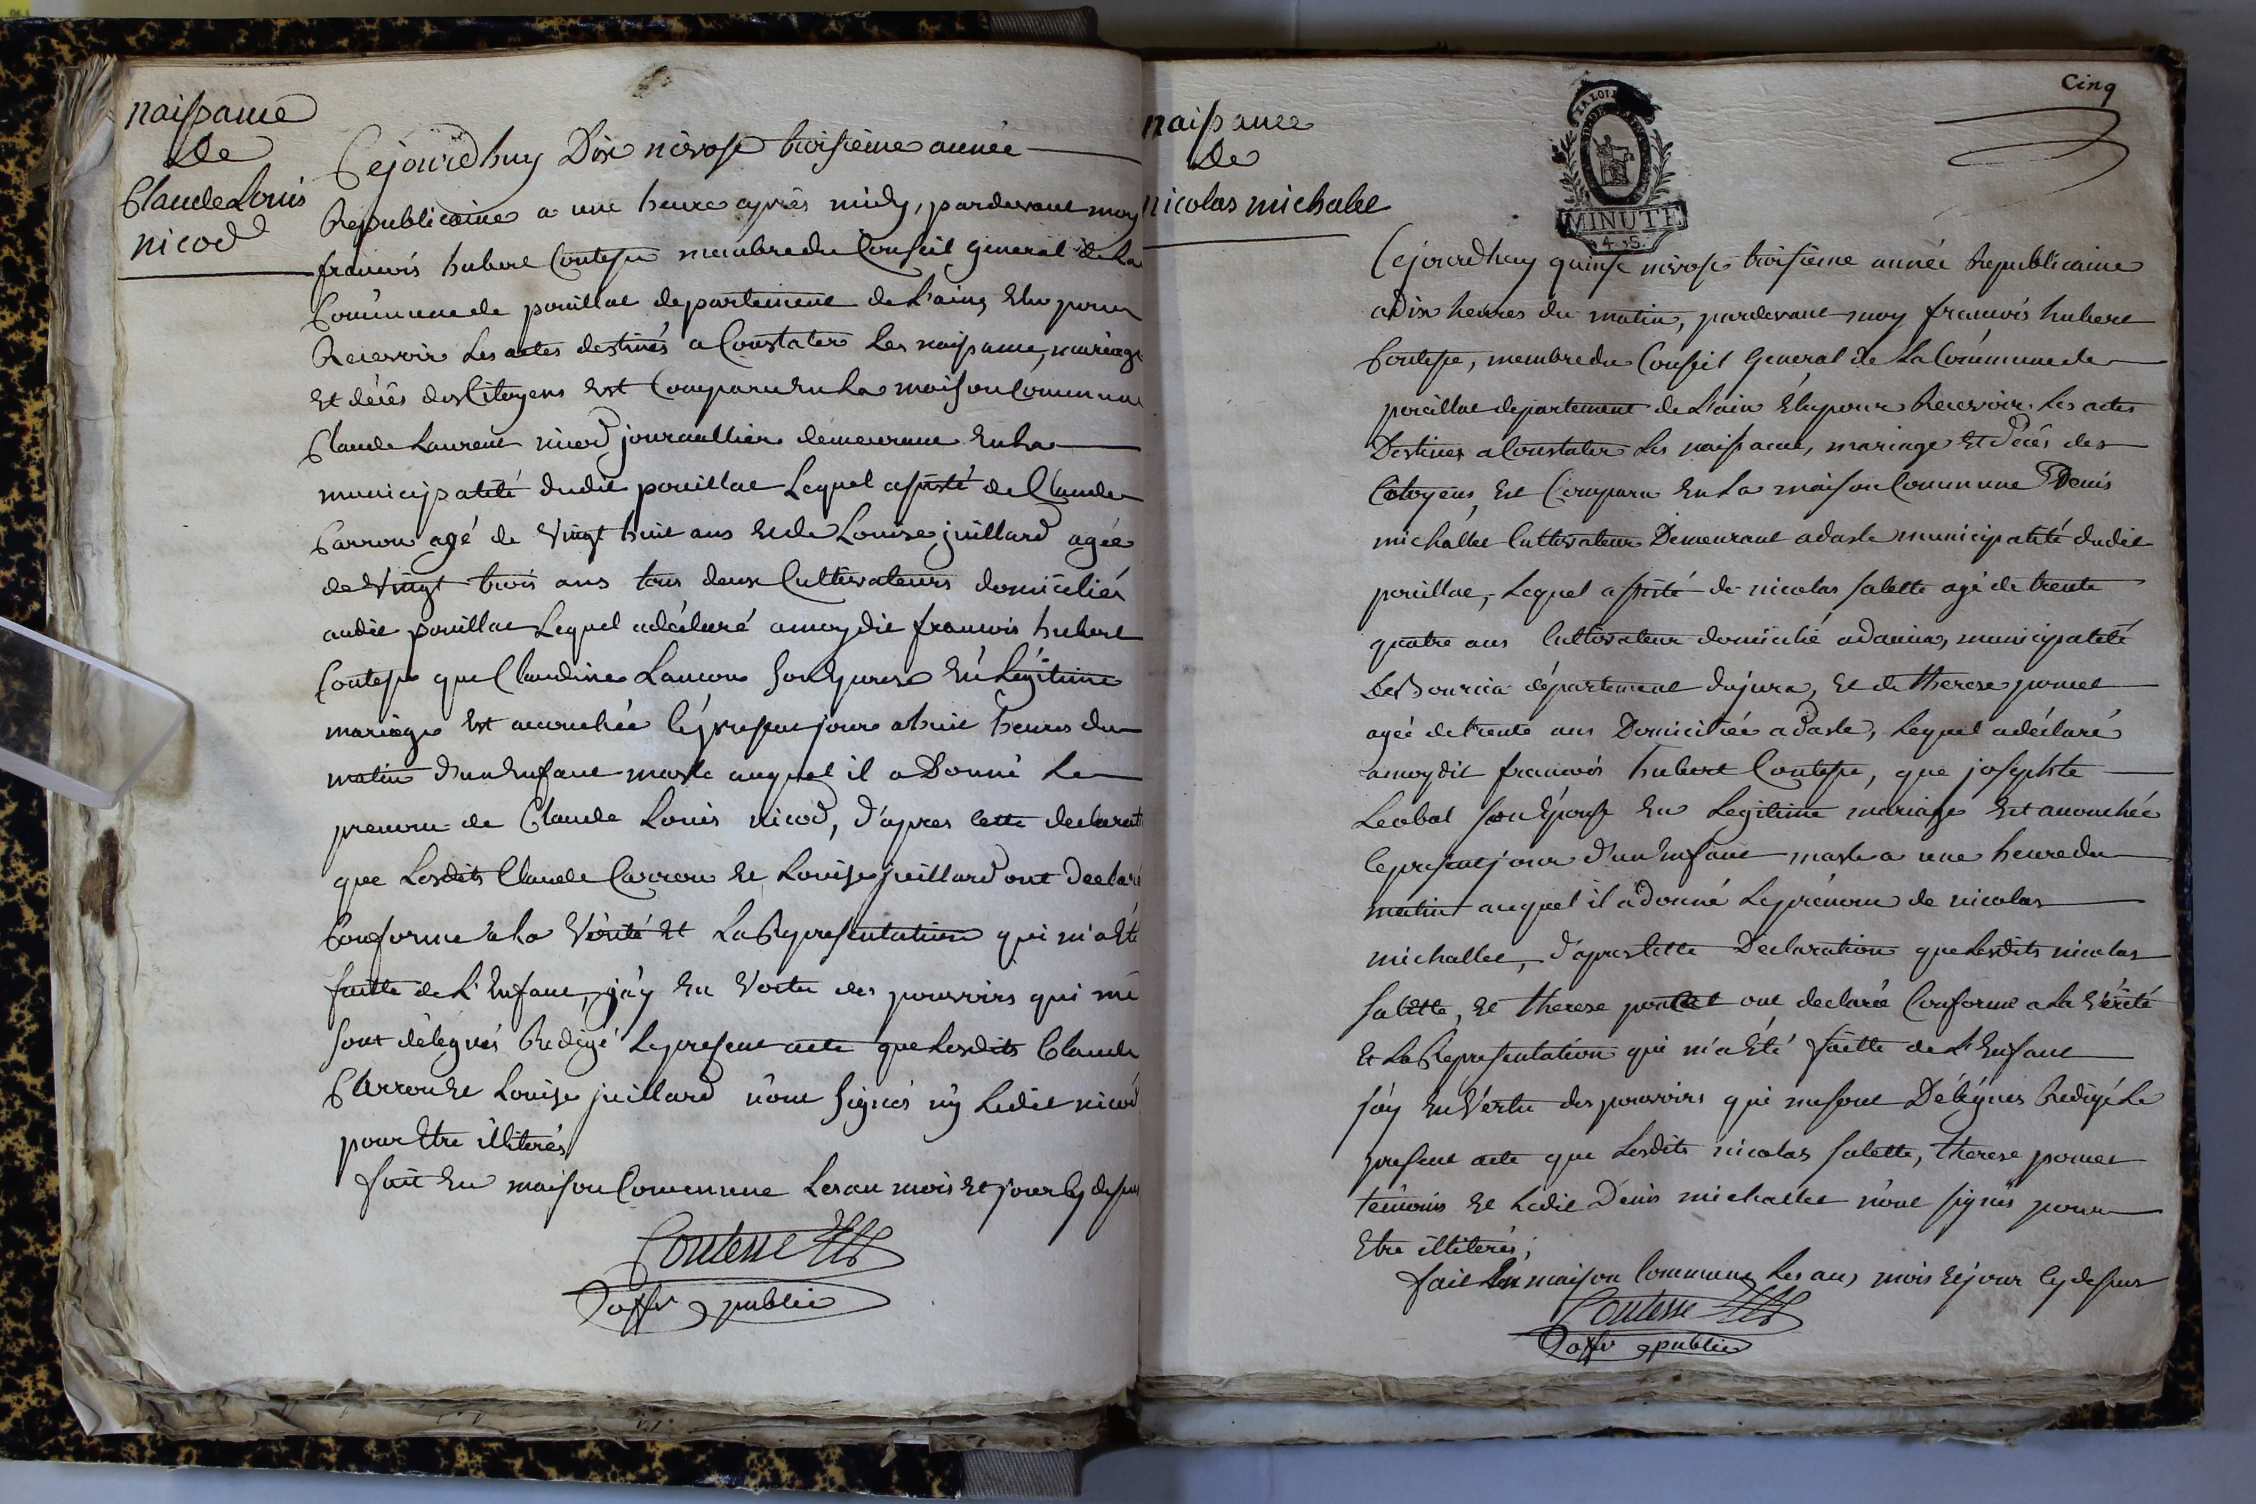 naissance
de
Claude Louis
nicod
Cejourdhuy Dix nivose troisième année
Republicaine a une heure après midy, pardevant moy
francois hubert Contesse membre du Conseil General de La
Commune de pouillat departement de L'aing Elu pour
Recevoir Les actes destinés a Constater Les naissance, mariage
Et décès des Citoyens Est Comparu En La maison Commune
Claude Laurent nicod journaillier demeurant En La
municipalité dudit pouillat Lequel assisté de Claude
Carron agé de Vingt huit ans et de Louise juillard agée
de Vingt trois ans tous deux Cultivateurs domiciliés
audit pouillat Lequel a déclaré a moydit francois hubert
Contesse que Claudine Lancon Son Epouse En Légitime
mariage Est accouchée Cé présent jour a huit heures du
matin d'un Enfant masle auquel il a Donné Le
prenom de Claude Louis nicod, d'apres Cette declarat
que Lesdits Claude Carron et Louise juillard ont declaré
Conforme a La Vérité Et La Representation qui m'a Eté
faitte de L'Enfant, j'ay En Vertu des pouvoirs qui me
sont délégués Redigé Le present acte que Lesdits Claude
Carron Et Louise juillard n'ont Signés ny Ledit nicod
pour Etre illiterés
fait En maison Commune Les an mois Et jour Cy dessus
Contesse Elu
offr public
Cinq
LA LOI
MINUTE
4. S.
naissance
de
nicolas michallet
Cejourdhuy quinse nivose troisième année Republicaine
a Dix heures du matin, pardevant moy francois hubert
Contesse, membre du Conseil General de La Commune de
pouillat departement de L'ain Elu pour Recevoir Les actes
Destines a Constater Les naissance, mariage Et Décès des
Citoyens, Est Comparu En La maison Commune Denis
michallet Cultivateur Demeurant a dasle municipalité dudit
pouillat, Lequel assisté de nicolas salette agé de trente
quatre ans Cultivateur domicilié a municipalité
De Bourcia département dujura, Et de therese poncet
agée de trente ans Domiciliée a Dasle, Lequel a déclaré
a moydit francois hubert Contesse, que josephte
Leobal son Epouse En Legitime mariage Est accouchée
Le present jour d'un Enfant masle a une heure du
matin auquel il a donné Le prénom de nicolas
michallet, d'apres Cette Declaration que Lesdits nicolas
salette, Et therese poncet ont declaré Conforme a La Vérité
Et La Representation qui m'a Eté faitte de L'Enfant
j'ay En Vertu des pouvoirs qui me sont Délégues Redigé Le
present acte que Lesdits nicolas salette, therese poncet
temoins Et Ledit Denis michallet n'ont signés pour
Etre illiterés;
fait En maison Commune Les an, mois Et jour Cy dessus
Contesse Elu
offr public